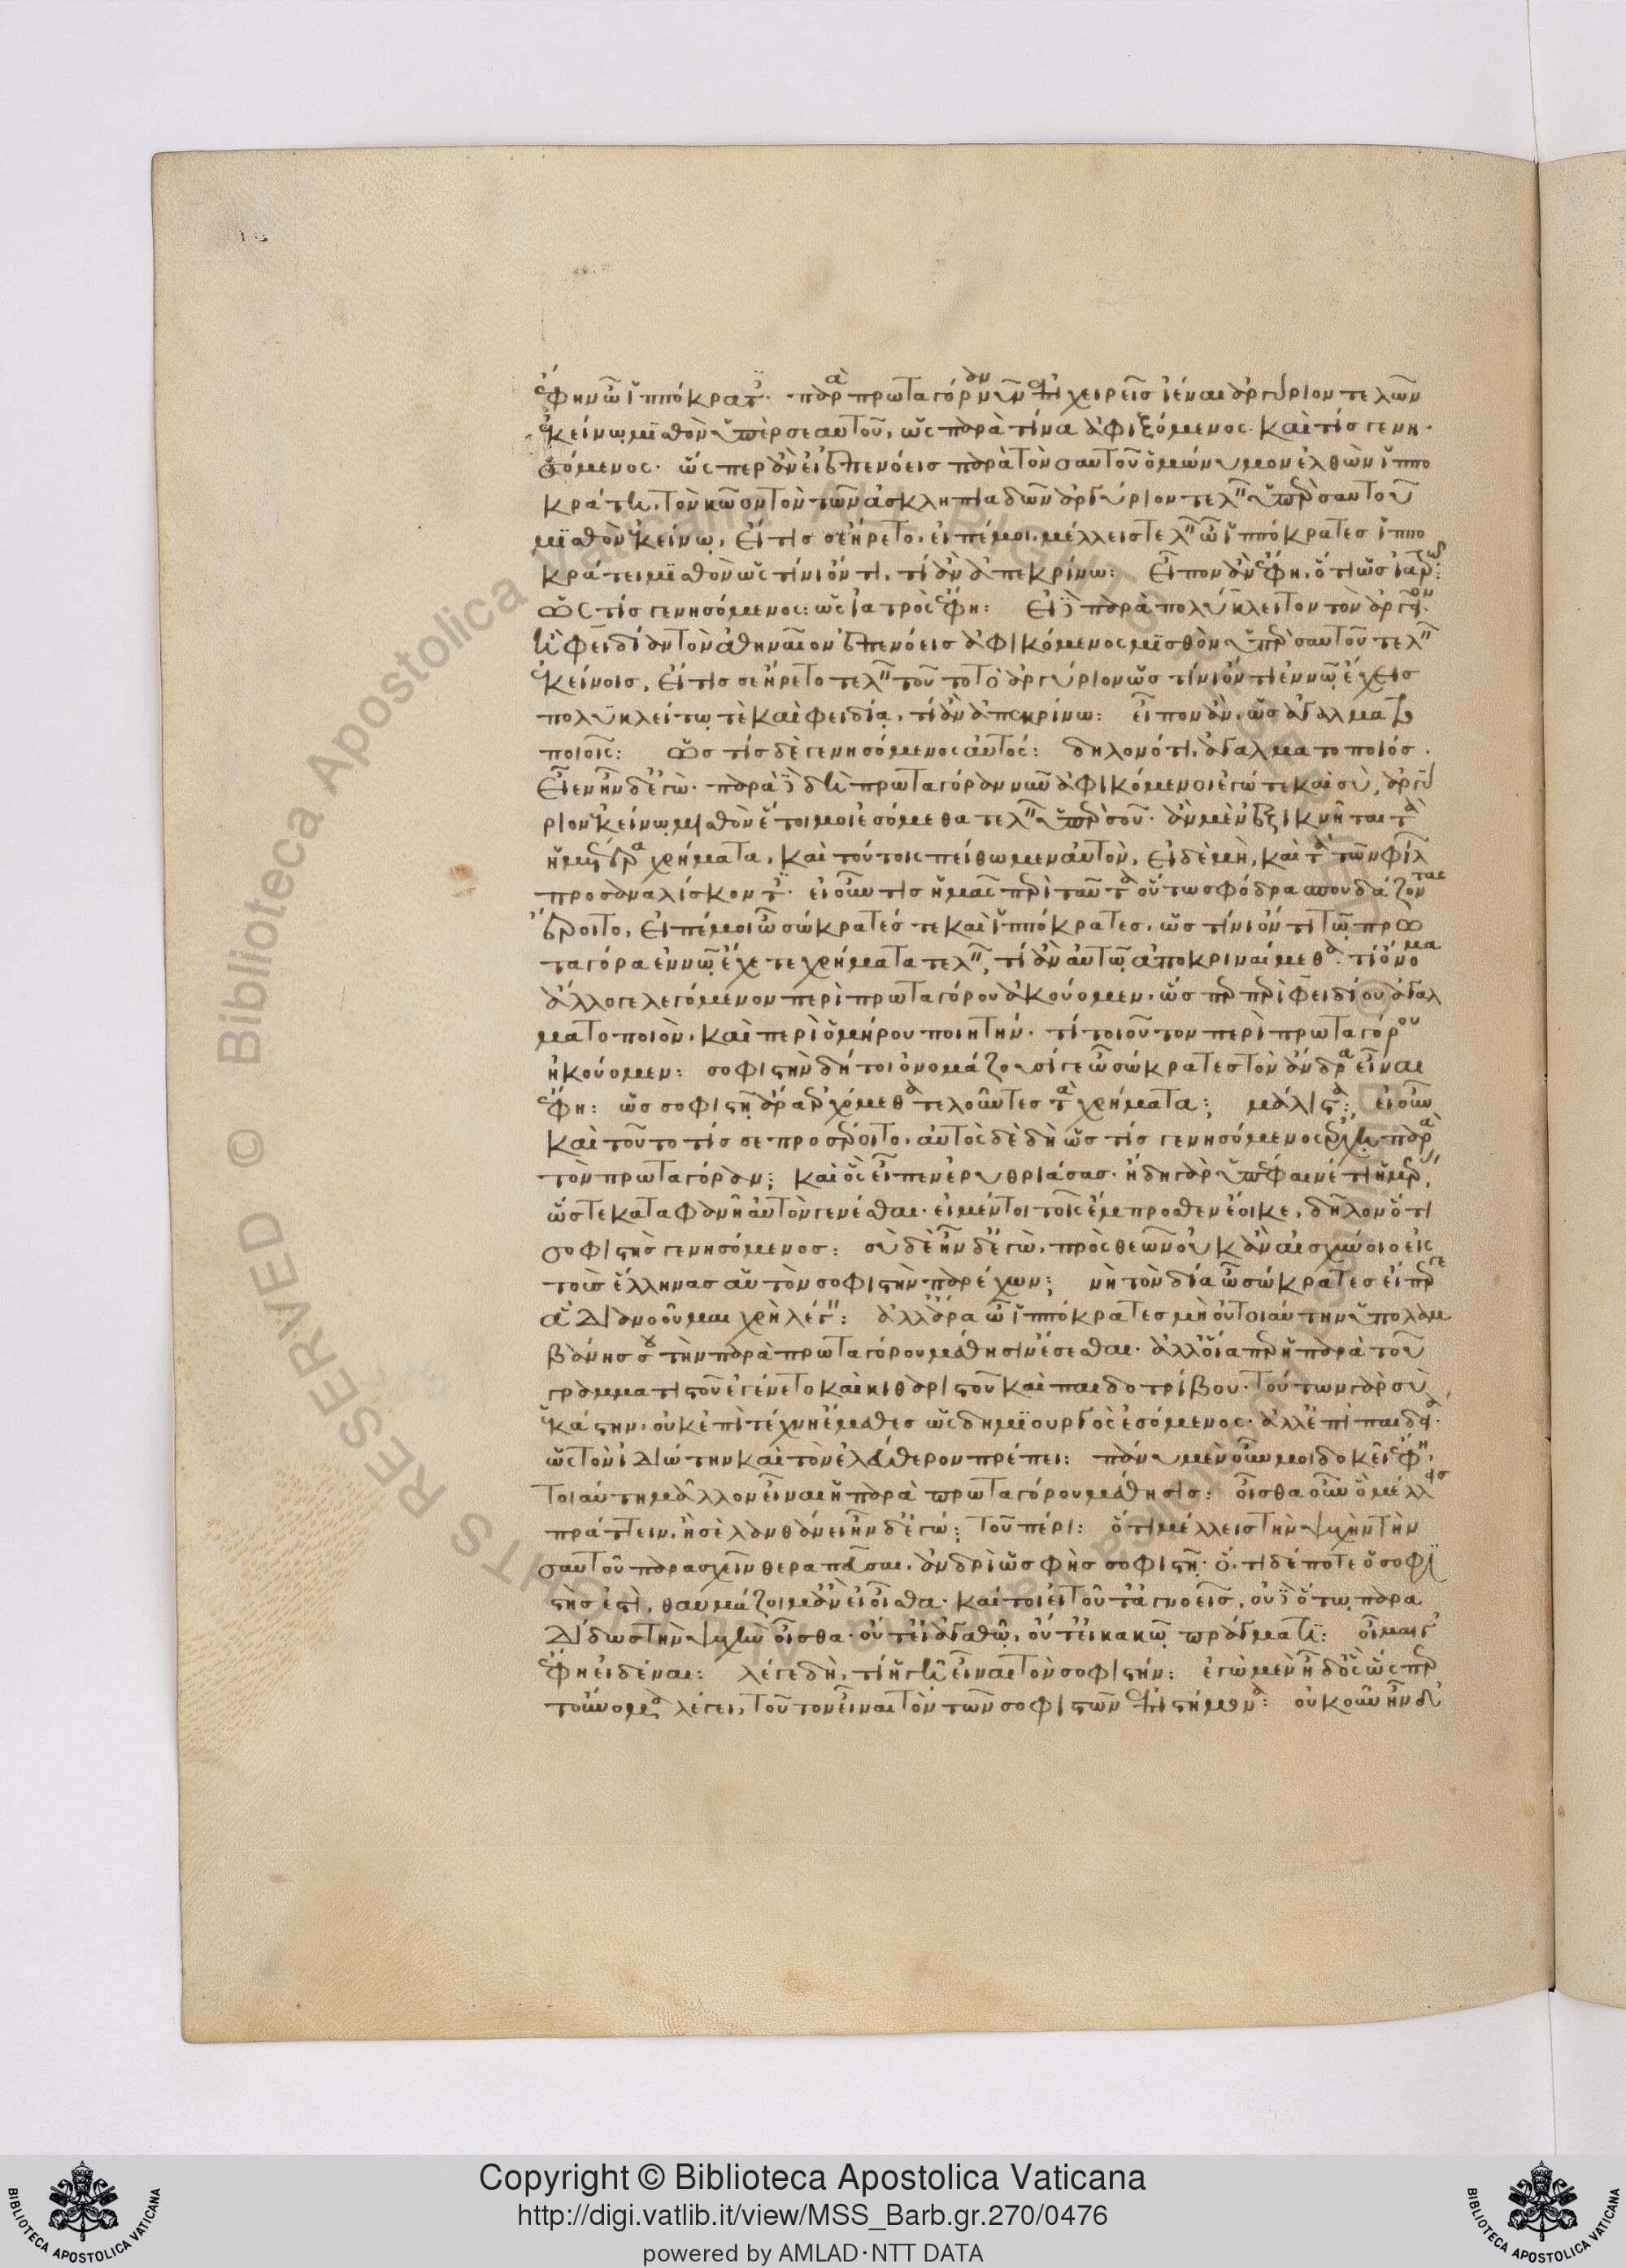 ἔφην ὦ ἱππόκρατες· παρὰ πρωταγόραν νῦν ἐπιχειρεῖς ἰέναι ἀργύριον τελῶν
ἐκείνω μισθὸν ὑπὲρ σεαυτοῦ, ὡς παρὰ τίνα ἀφιξόμενος· καὶ τίς γενη
σόμενος· ὥσπερ ἂν εἰ ἐπενόεις παρὰ τὸν σαυτοῦ ὁμώνυμον ἐλθὼν ἱππο
κράτη, τὸν κῶον τὸν τῶν ἀσκληπιαδῶν ἀργύριον τελεῖν ὑπὲρ σαυτοῦ
μισθὸν ἐκείνω, εἴ τις σε ἤρετο, εἰπέ μοι, μέλλεις τελεῖν ὦ ἱππόκρατες ἱππο
κράτει μισθὸν ὡς τίνι ὄντι, τί ἂν ἀπεκρίνω: εἶπον ἂν ἔφη, ὅτι ὡς ἰατρῶ:
ὡς τίς γενησόμενος: ὡς ἰατρὸς ἔφη: εἰ δὲ παρὰ πολύκλειτον τὸν ἀργεῖον·
ἢ φειδίαν τὸν ἀθηναῖον ἐπενόεις ἀφικόμενος μισθὸν ὑπὲρ σαυτοῦ τελεῖν
ἐκείνοις, εἴ τις σε ἤρετο τελεῖν τοῦτο τὸ ἀργύριον ὡς τίνι ὄντι ἐν νῶ ἔχεις
πολυκλείτω τὲ καὶ φειδία, τί ἂν ἀπεκρίνω: εἶπον ἂν, ὡς ἀγαλματο
ποιοῖς: ὡς τίς δὲ γενησόμενος αὐτός: δῆλον ὅτι, ἀγαλματοποιός.
εἶεν ἦν δ' ἐγώ· παρὰ δὲ δὴ πρωταγόραν νῦν ἀφικόμενοι ἐγώ τε καὶ σὺ, ἀργύ
ριον ἐκείνω μισθὸν ἕτοιμοι ἐσόμεθα τελεῖν ὑπὲρ σοῦ· ἂν μὲν ἐξικνῆται τὰ
ἡμέτερα χρήματα, καὶ τούτοις πείθωμεν αὐτὸν, εἰ δὲ μὴ, καὶ τὰ τῶν φίλ
προσαναλίσκοντες· εἰ οὖν τις ἡμᾶς περὶ ταῦτα οὕτω σφόδρα σπουδάζοντας
ἔροιτο, εἰπέ μοι ὦ σώκρατές τε καὶ ἱππόκρατες, ὡς τίνι ὄντι τῶ πρω
ταγόρα ἐν νῶ ἔχετε χρήματα τελεῖν, τί ἂν αὐτῶ ἀποκριναίμεθα· τί ὄνομα
ἄλλο γε λεγόμενον περὶ πρωταγόρου ἀκούομεν, ὥσπερ περὶ φειδίου ἀγαλ
ματοποιὸν, καὶ περὶ ὁμήρου ποιητήν· τί τοιοῦτον περὶ πρωταγόρου
ἠκούομεν: σοφιστὴν δή τοι ὀνομάζουσί γε ὦ σώκρατες τὸν ἄνδρα εἶναι
ἔφη: ὡς σοφιστῆ ἄρα ἐρχόμεθα τελοῦντες τὰ χρήματα; μάλιστα: εἰ οὖν
καὶ τοῦτο τίς σε προσέροιτο, αὐτὸς δὲ δὴ ὡς τίς γενησόμενος ἔρχη παρὰ
τὸν πρωταγόραν; καὶ ὃς εἶπεν ἐρυθριάσας· ἤδη γὰρ ὑπέφαινέ τι ἡμέρας,
ὥστε καταφανῆ αὐτὸν γενέσθαι· εἰ μέν τοι τοῖς ἔμπροσθεν ἔοικε, δῆλον ὅτι
σοφιστὴς γενησόμενος: σὺ δὲ ἦν δ' ἐγὼ, πρὸς θεῶν οὐκ ἂν αἰσχύνοιο εἰς
τοὺς ἕλληνας αὑτὸν σοφιστὴν παρέχων; νὴ τὸν δία ὦ σώκρατες εἴπερ γε
ἃ διανοοῦμαι χρὴ λέγειν: ἀλλ' ἄρα ὦ ἱππόκρατες μὴ οὐ τοιαύτην ὑπολαμ
βάνης σου τὴν παρὰ πρωταγόρου μάθησιν ἔσεσθαι· ἀλλ' οἵα περ ἡ παρὰ τοῦ
γραμματιστοῦ ἐγένετο καὶ κιθαριστοῦ καὶ παιδοτρίβου· τούτων γὰρ σὺ
ἑκάστην, οὐκ ἐπὶ τέχνη ἔμαθες ὡς δημιουργὸς ἐσόμενος· ἀλλ' ἐπὶ παιδεία·
ὡς τὸν ἰδιώτην καὶ τὸν ἐλεύθερον πρέπει: πάνυ μὲν οὖν μοι δοκεῖ ἔφη,
τοιαύτη μᾶλλον εἶναι ἡ παρὰ πρωταγόρου μάθησις: οἶσθα οὖν ὃ μέλλεις
πράττειν, ἤ σε λανθάνει ἦν δ' ἐγώ; τοῦ πέρι: ὅτι μέλλεις τὴν ψυχὴν τὴν
σαυτοῦ παρασχεῖν θεραπεῦσαι, ἀνδρὶ ὡς φὴς σοφιστῆ· ὅ, τι δέ ποτε ὁ σοφι
στής ἐστι, θαυμάζοιμ' ἂν εἰ οἶσθα· καί τοι εἰ τοῦτ' ἀγνοεῖς, οὐδὲ ὅτω παρα
δίδως τὴν ψυχὴν οἶσθα· οὔτ' εἰ ἀγαθῶ, οὔτ' εἰ κακῶ πράγματι: οἶμαί γ'
ἔφη εἰδέναι: λέγε δὴ, τί ἡγῆ εἶναι τὸν σοφιστήν: ἐγὼ μὲν ἦ δ' ὃς ὥσπερ
τοὔνομα λέγει, τοῦτον εἶναι τὸν τῶν σοφιστῶν ἐπιστήμονα: οὐκοῦν ἦν δ'
Copyright © Biblioteca Apostolica Vaticana
http://digi.vatlib.it/view/MSS_Barb.gr.270/0476
powered by AMLAD·NTT DATA